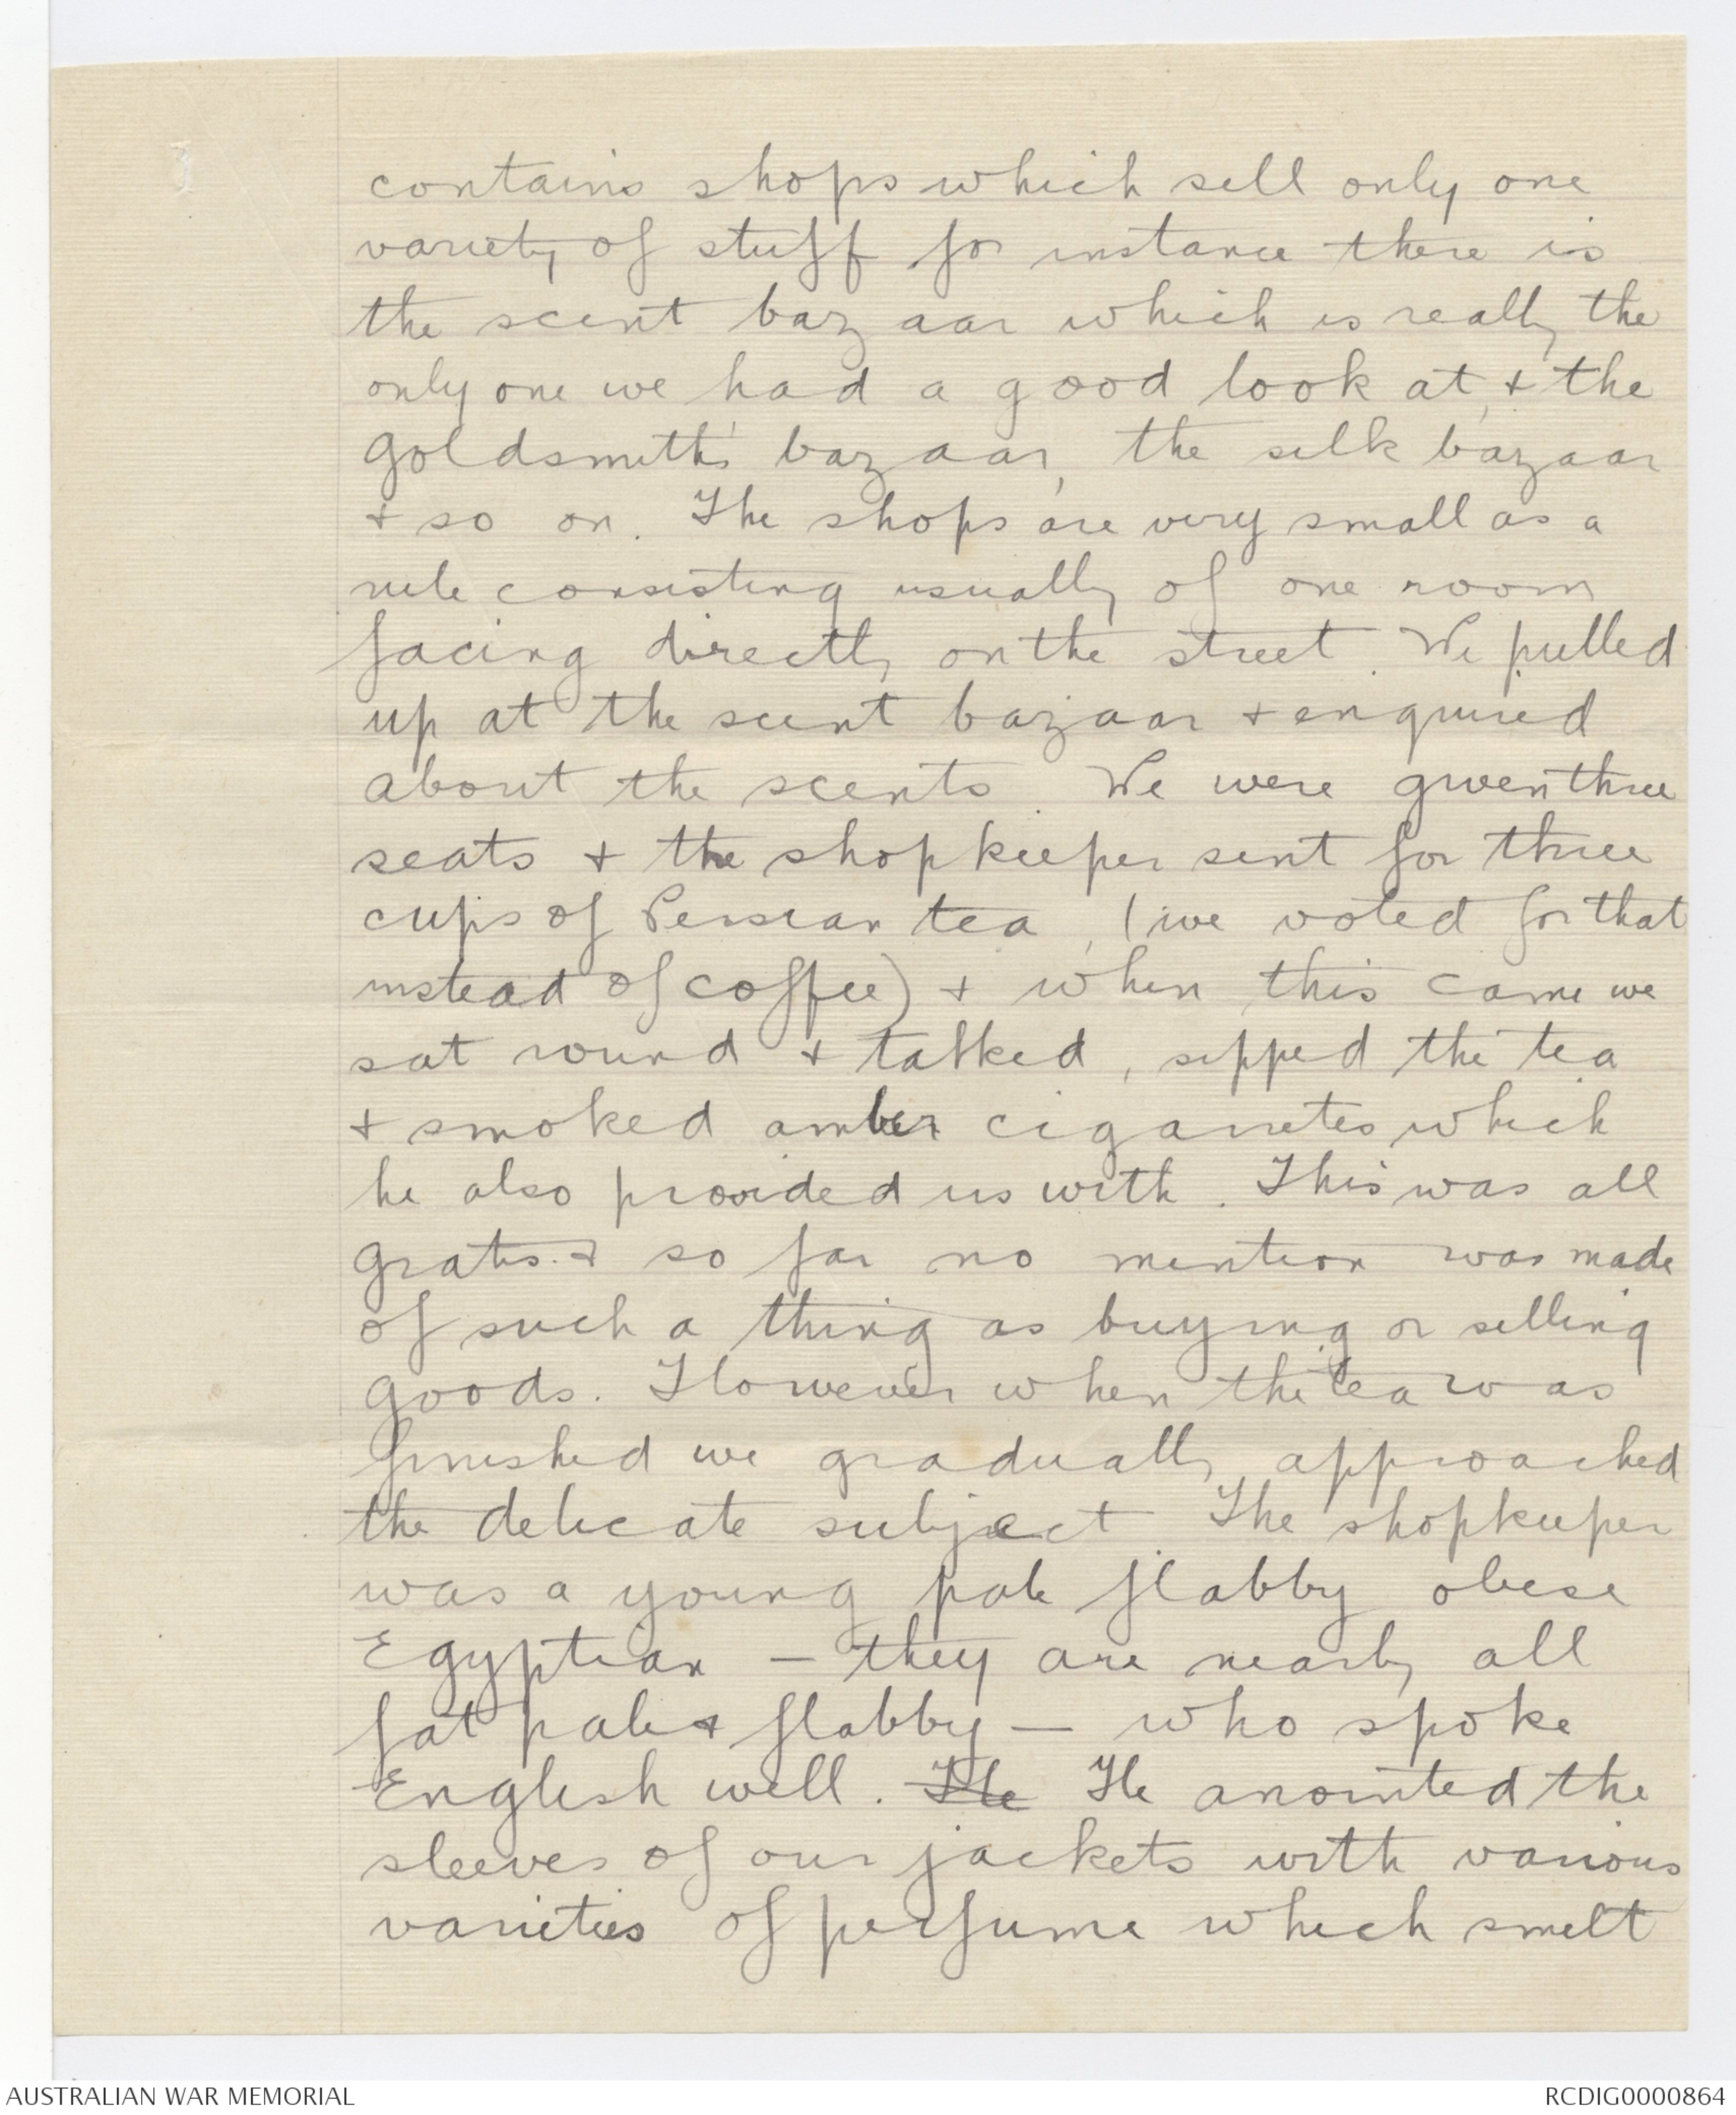 contains shops which sell only one
variety of stuff for instance there is
the scent bazaar which is really the
only one we had a good look at, & the
goldsmith's bazaar, the silk bazaar
& so on. The shops are very small as a
rule consisting usually of one room
facing directly on the street. We pulled
up at the scent bazaar & enquired
about the scents. We were given three
seats & the shopkeeper sent for three
cups of Persian tea, (we voted for that
instead of coffee) & when this came we
sat round & talked, sipped the tea
& smoked amber cigarretes which
he also provided us with. This was all
gratis. & so far no mention was made
of such a thing as buying or selling
goods. However when the tea was
finished we gradually approached
the delicate subject. The shopkeeper
was a young pale flabby obese
Egyptian — they are nearly all
fat pale & flabby — who spoke
English well. The He anointed the
sleeves of our jackets with various
varieties of perfume which smelt
AUSTRALIAN WAR MEMORIAL
RCDIG0000864